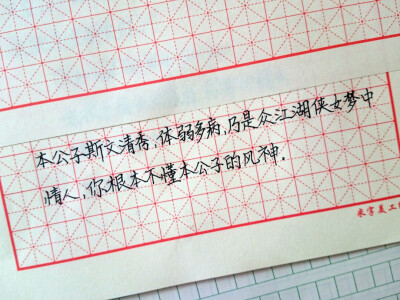 本公子斯文清秀,体弱多病,乃是众江湖侠女梦中
情人,你根本不懂本公子的风神.
米字美工